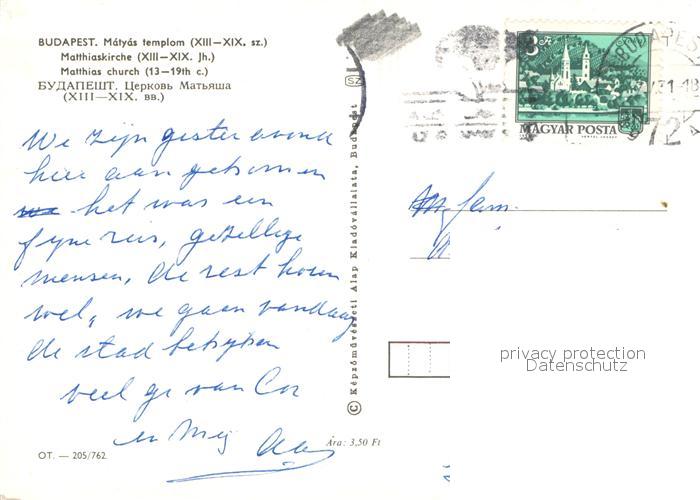 BUDAPEST. Mátyás templom (XIII—XIX. sz.)
Matthiaskirche (XIII—XIX. Jh.)
Matthias church (13—19th c.)
БУДАПЕШТ. Церковь Матьяша
(XIII—XIX. вв.)
We zijn gister avond
hier aan gekomen
het was een
fijne reis, gezellige
mensen, de rest komt
wel, we gaan vandaag
de stad bekijken
veel gr van Cor
en Mej
OT. — 205/762.
Ára: 3,50 Ft
© Képzőművészeti Alap Kiadóvállalata, Budapest
SZ
3 Ft
MAGYAR POSTA
BUDAPEST
72
fam.
privacy protection
Datenschutz